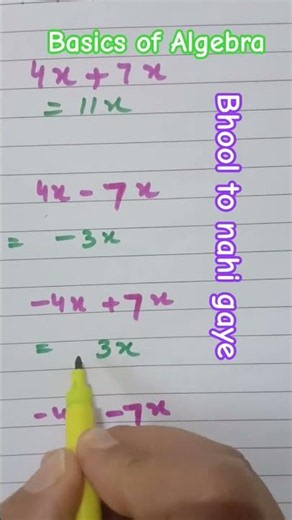 Basics of Algebra
4x + 7x
= 11x
4x - 7x
= -3x
-4x + 7x
= 3x
-7x
Bhool to nahi gaye